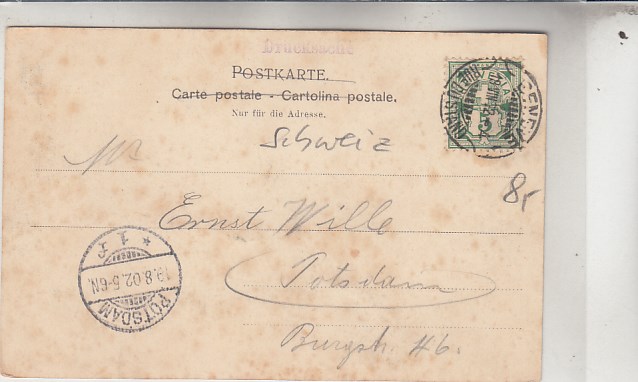 Drucksache
POSTKARTE.
Carte postale - Cartolina postale.
Nur für die Adresse.
Schweiz
Mr
8,-
Ernst Wille
Potsdam
Burgstr. 46.
POTSDAM
19.8.02.5-6N.
* 1 f
GENÈVE